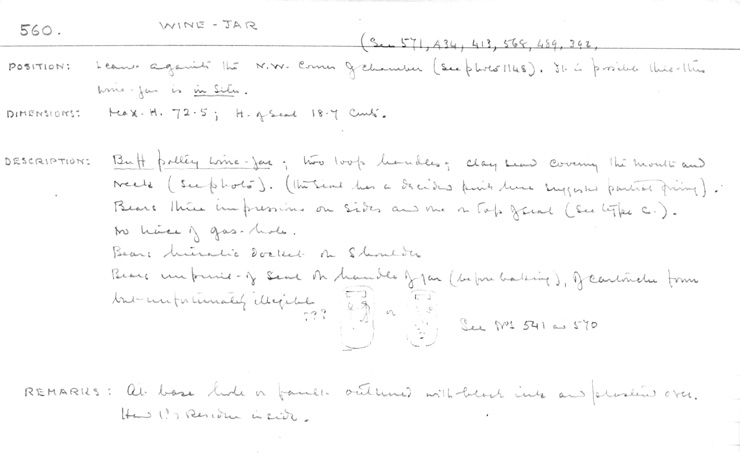 560.
WINE-JAR
(See 571, 434, 413, 568, 489, 392,
POSITION: Leans against the N.W. corner of chamber (see photo 1148). It is possible this
wine-jar is in situ.
DIMENSIONS: Max. H. 72.5; H. of seal 18.7 Cents.
DESCRIPTION: Buff pottery wine-jar; two loop handles; clay seal covering the mouth and
neck (see photo). (The seal has a decided pink hue suggests partial firing).
Bears three impressions on sides and one on top of seal (see type C.).
No trace of gas-hole.
Bears hieratic docket on shoulder
Bears imprint of seal on handle of jar (before baking), of cartouche form
but unfortunately illegible
??? or
See Nos 541 and 570
REMARKS: At base hole or fault outlined with black ink and plastered over.
Has Residue inside.